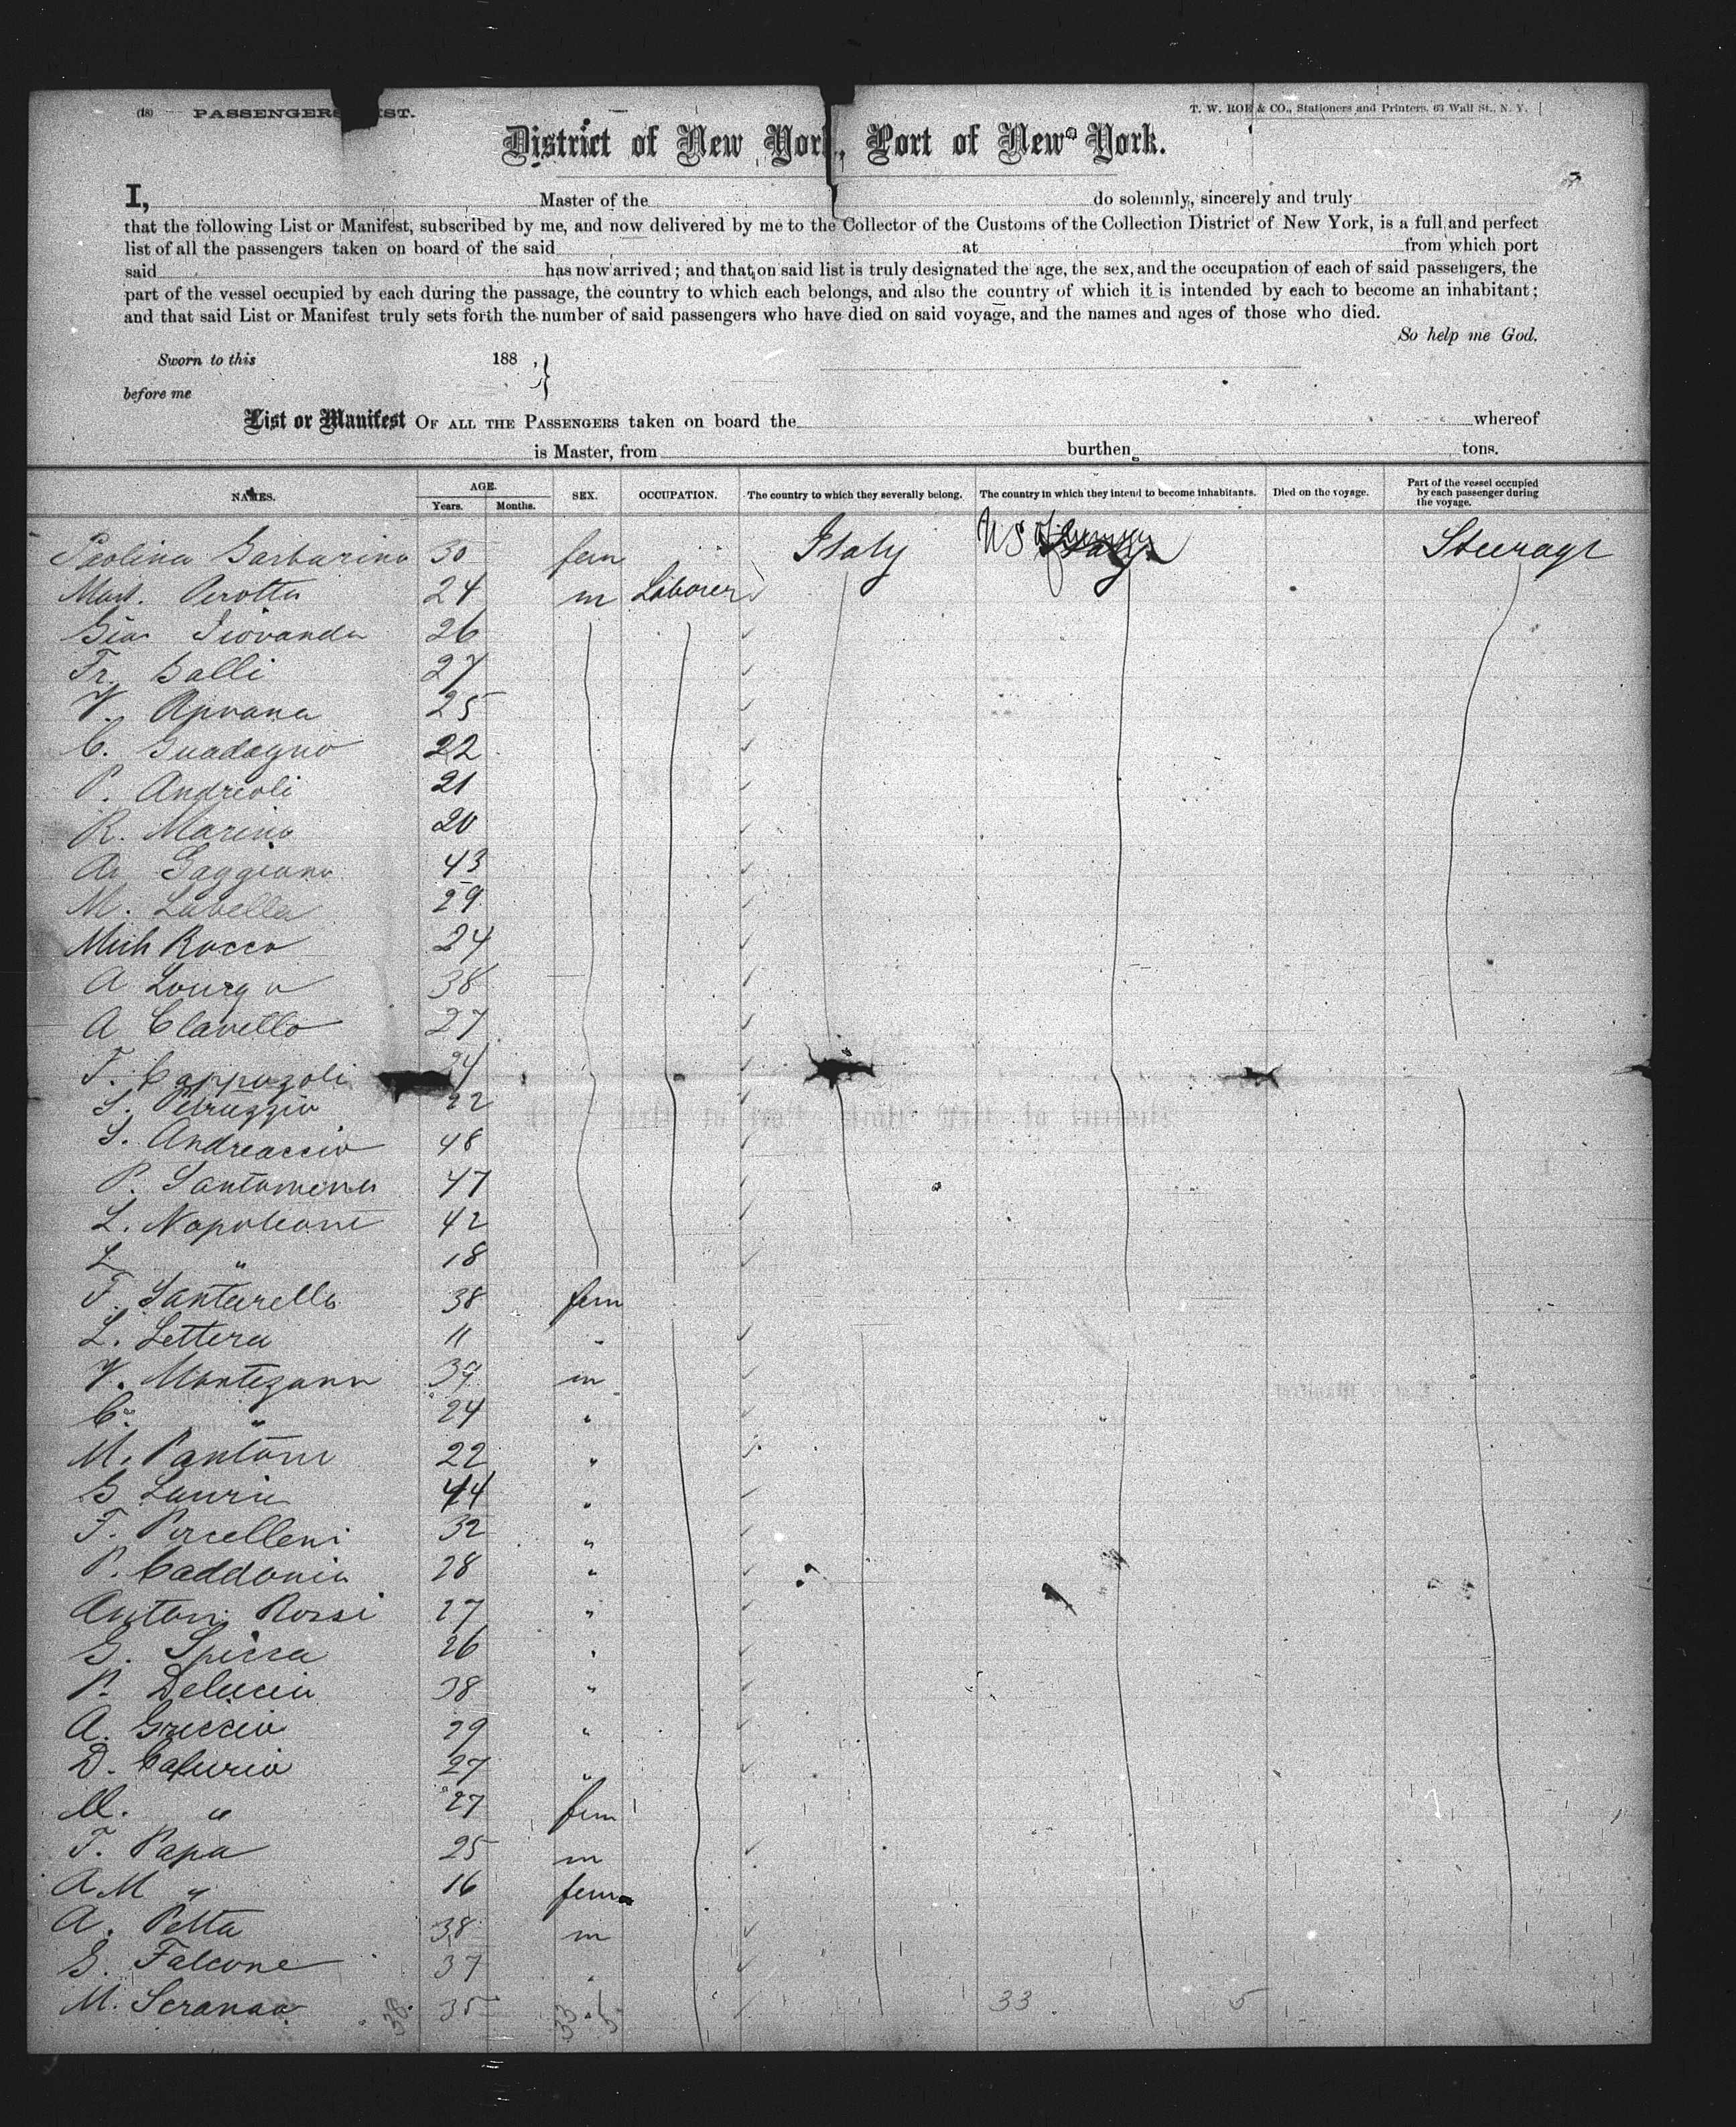 (18) PASSENGERS LIST.
T. W. ROE & CO., Stationers and Printers, 63 Wall St., N. Y.
District of New York, Port of New York.
I, Master of the do solemnly, sincerely and truly
that the following List or Manifest, subscribed by me, and now delivered by me to the Collector of the Customs of the Collection District of New York, is a full and perfect
list of all the passengers taken on board of the said at from which port
said has now arrived; and that on said list is truly designated the age, the sex, and the occupation of each of said passengers, the
part of the vessel occupied by each during the passage, the country to which each belongs, and also the country of which it is intended by each to become an inhabitant;
and that said List or Manifest truly sets forth the number of said passengers who have died on said voyage, and the names and ages of those who died.
So help me God.
Sworn to this 188 ,
before me
List or Manifest OF ALL THE PASSENGERS taken on board the whereof
is Master, from burthen tons.
NAMES. AGE. Years. Months. SEX. OCCUPATION. The country to which they severally belong. The country in which they intend to become inhabitants. Died on the voyage. Part of the vessel occupied by each passenger during the voyage.
Paolina Garbarino 30 fem Italy US Steerage
Mast. Perotta 24 m Laborer
26
Fr. Galli 27
V. Aprana 25
C. Guadagno 22
P. Andreoli 21
R. Marino 20
An Gaggiano 43
M. Labella 29
Mich Rocco 24
A Lourgo 38
A Clavello 27
F. Cappozoli 24
S. Petruzzio 22
S. Andreaccio 48
P. Santomena 47
L. Napoleone 42
L " 18
F. Santarella 38 fem
L. Lettera 11 "
V. Montezano 39 m
C. " 24 "
M. Pantone 22 "
G Lauria 44 "
F. Porcelleni 32 "
P. Caddonia 28 "
Anton Rossi 27 "
G. Spicca 26 "
P. Deluccia 38 "
A. Griccio 29 "
D. Cafurio 27 "
M. " 27 fem
F. Papa 25 m
A M " 16 fem
A. Petta 38 m
G. Falcone 37 "
M. Scranao 38 35 33 5 33 5